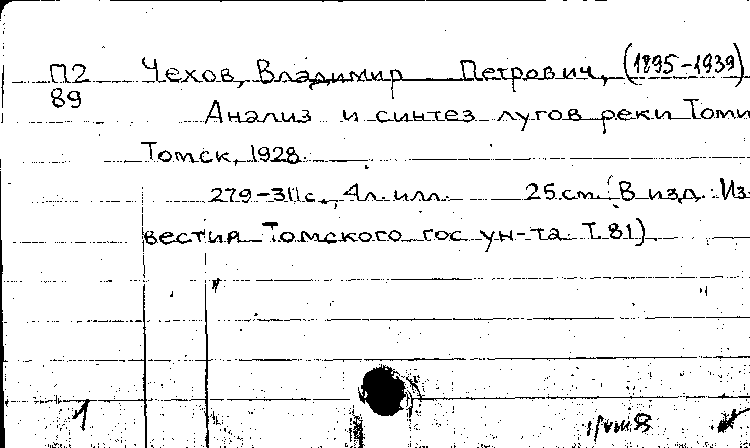 П2 Чехов, Владимир Петрович, (1895-1939)
89 Анализ и синтез лугов реки Томи
Томск, 1928.
279-311с., 4л. илл. 25 см. (В изд.: Из-
вестия Томского гос ун-та. Т. 81)
1